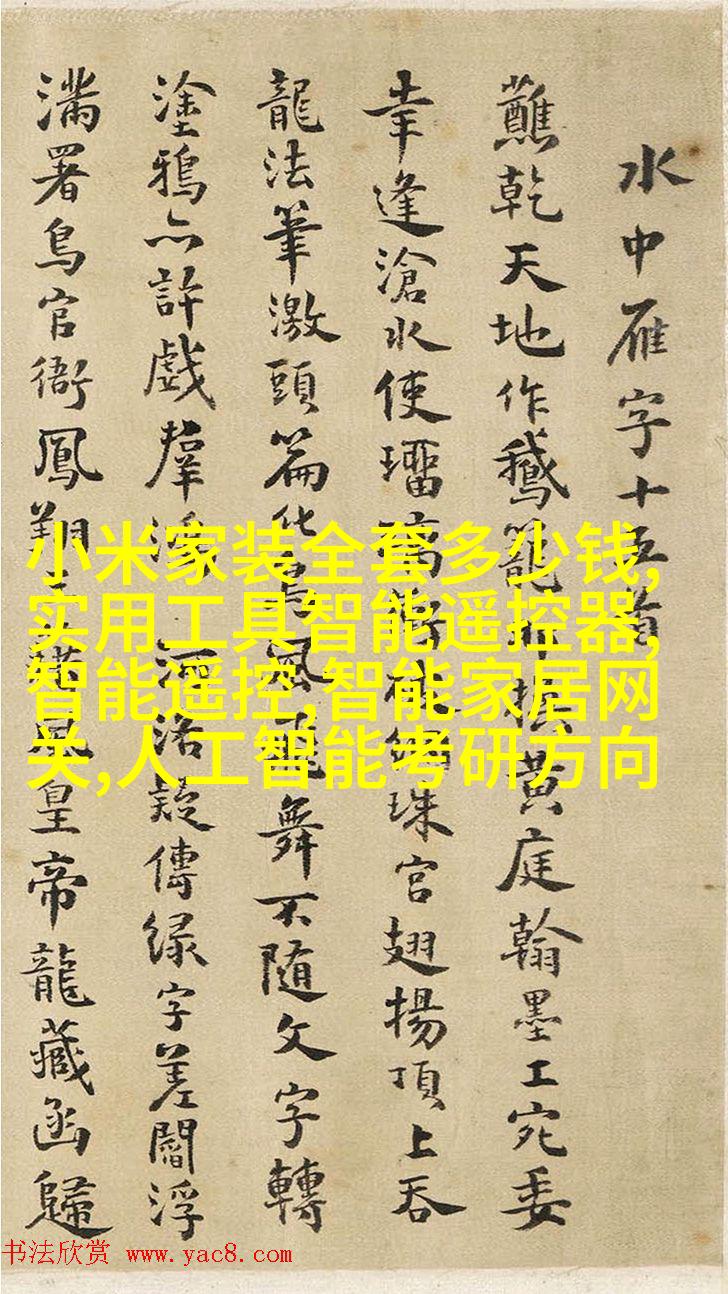 水中雁字十五首
蘸乾天地作鵝籠 黄庭翰墨工宛委
幸逢滄水使 珠宫翅揚頂上吞
龍法筆激頭篇化 風 舞不随文字轉
塗鴉亦許戲群鴻 河洛疑傳緑字差閻浮
滿署鳥官衙鳳翔 皇帝龍藏函歸
小米家装全套多少钱,
实用工具智能遥控器,
智能遥控,智能家居网
关,人工智能考研方向
书法欣赏 www.yac8.com